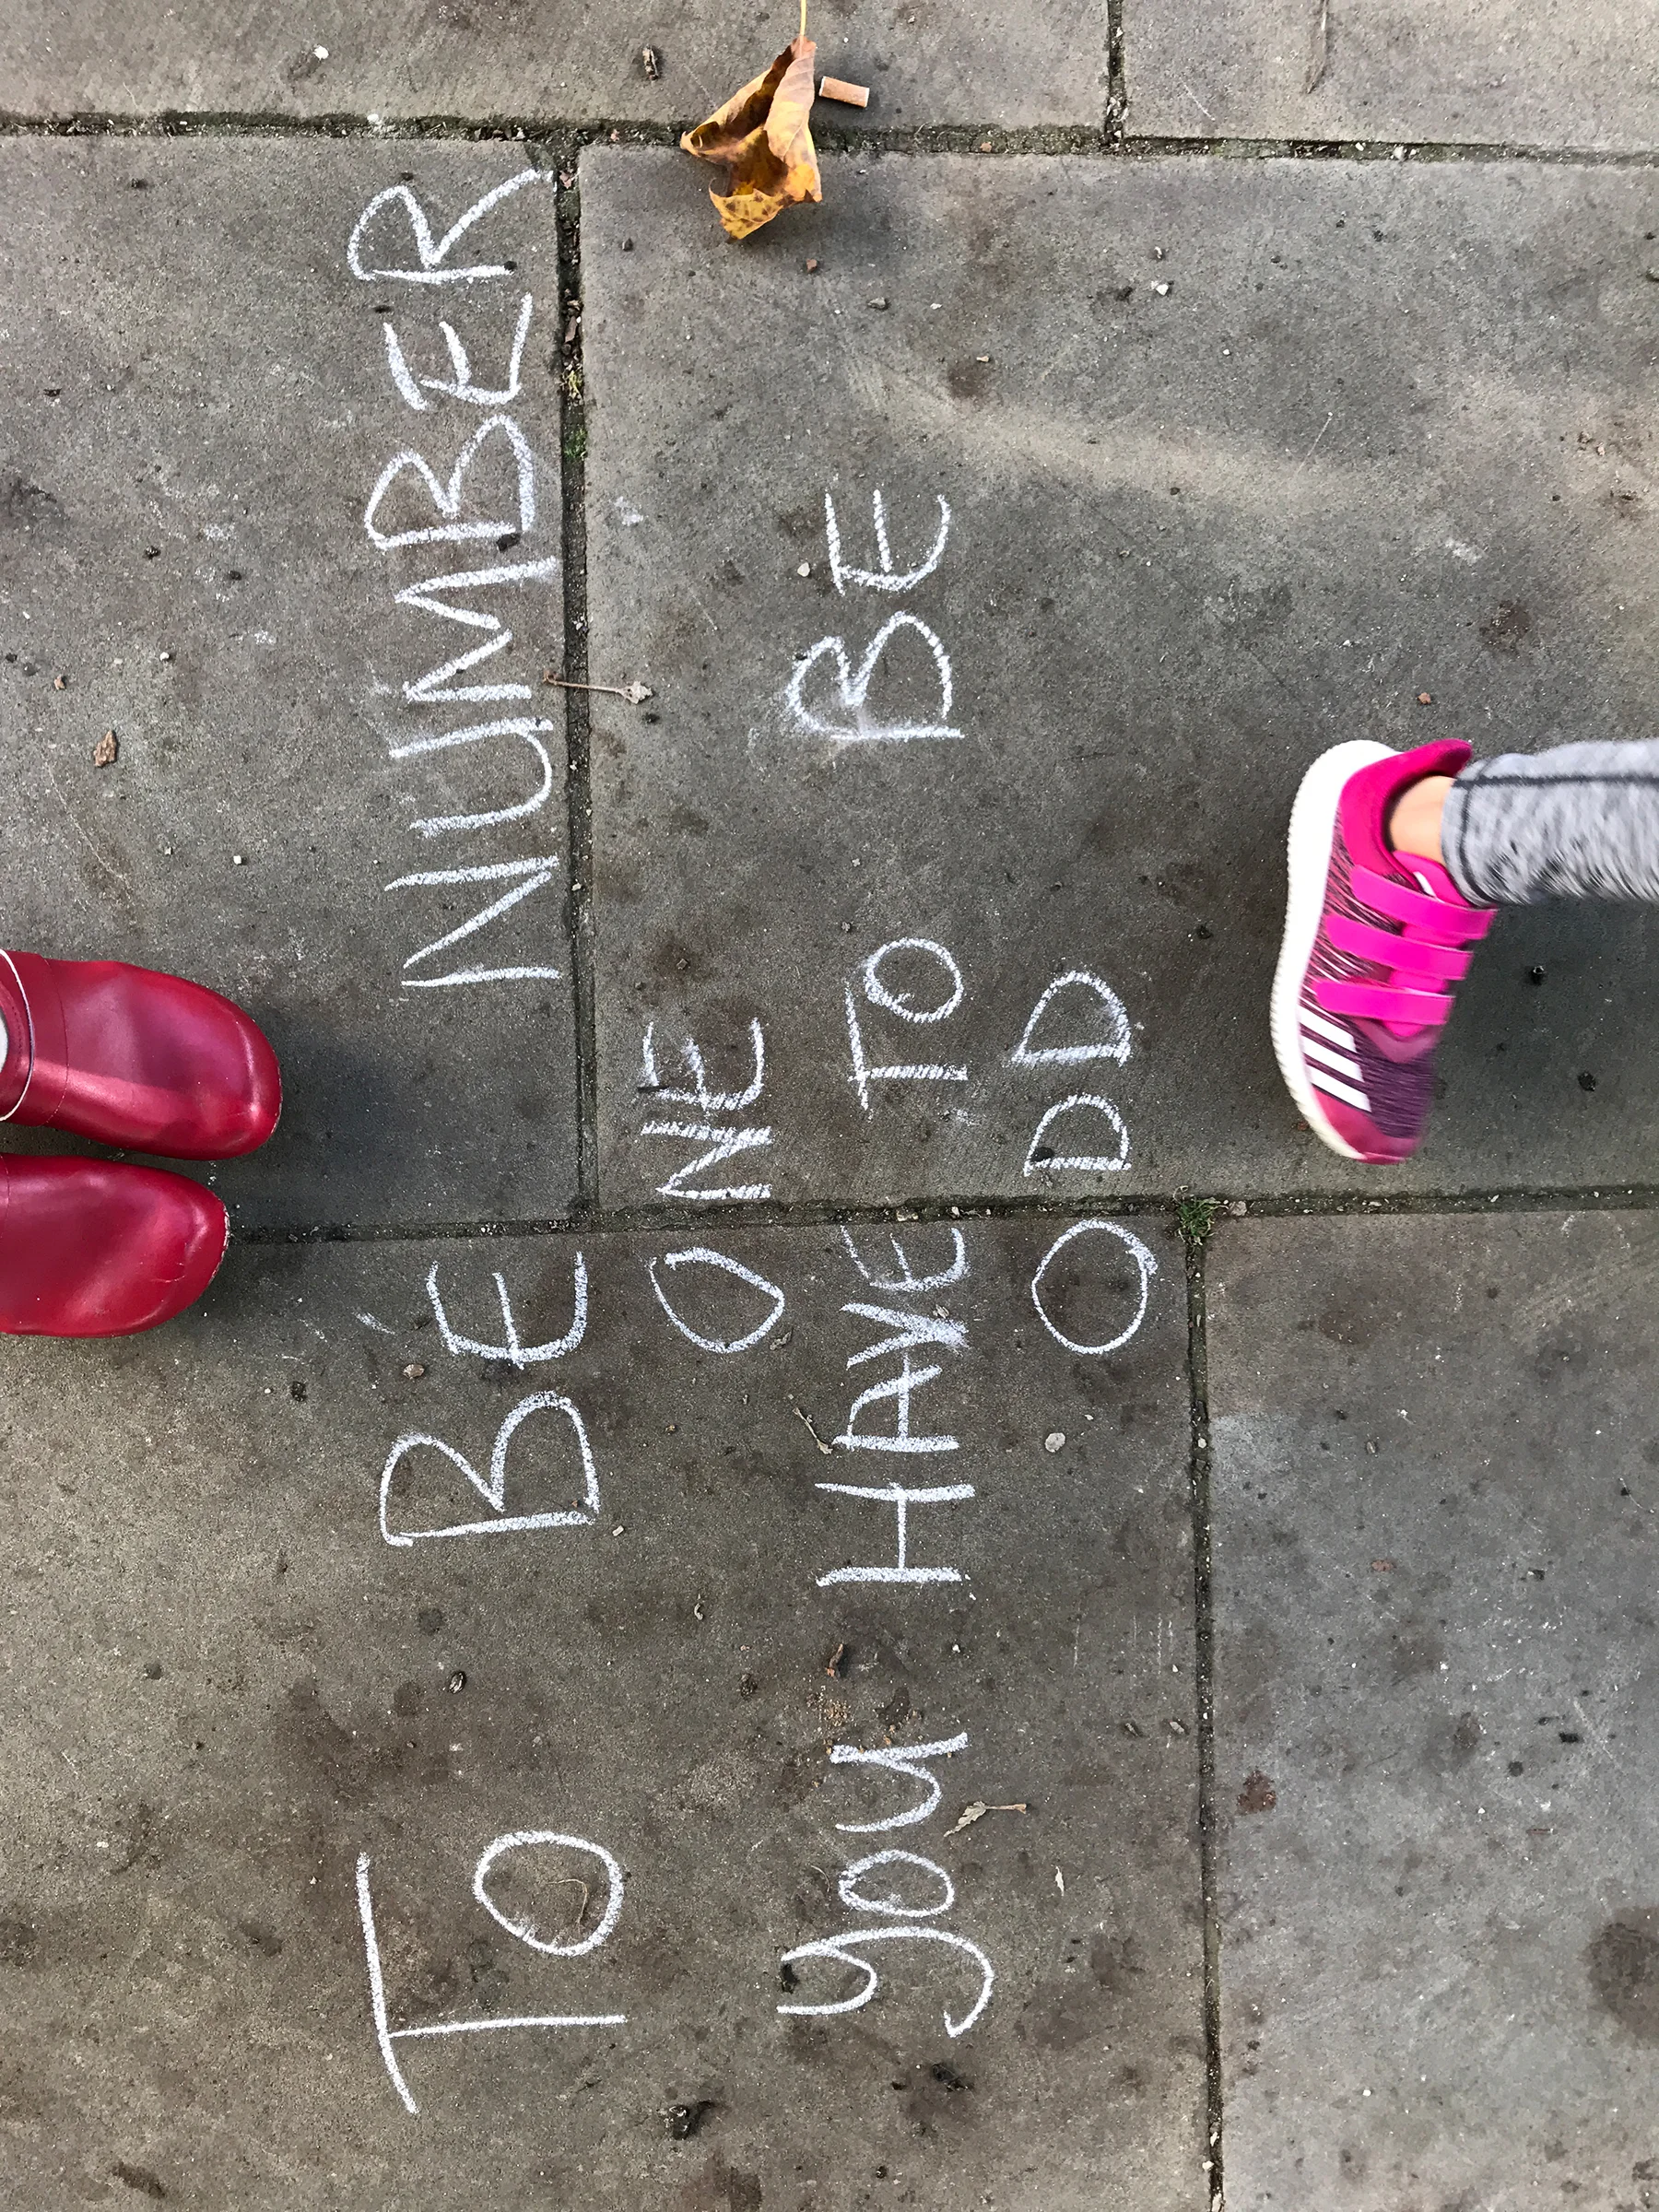 TO BE NUMBER
ONE
YOU HAVE TO BE
ODD